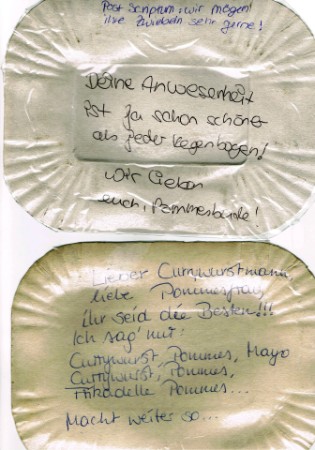 Post Scriptum: wir mögen
ihre Zwiebeln sehr gerne!
Deine Anwesenheit
ist ja schon schöner
als jeder Regenbogen!
wir lieben
euch, Pommesbude!
Lieber Currywurstmann,
liebe Pommesfrau,
ihr seid die Besten!!!
Ich sag' nur:
Currywurst, Pommes, Mayo
Currywurst, Pommes,
Frikadelle Pommes...
Macht weiter so...